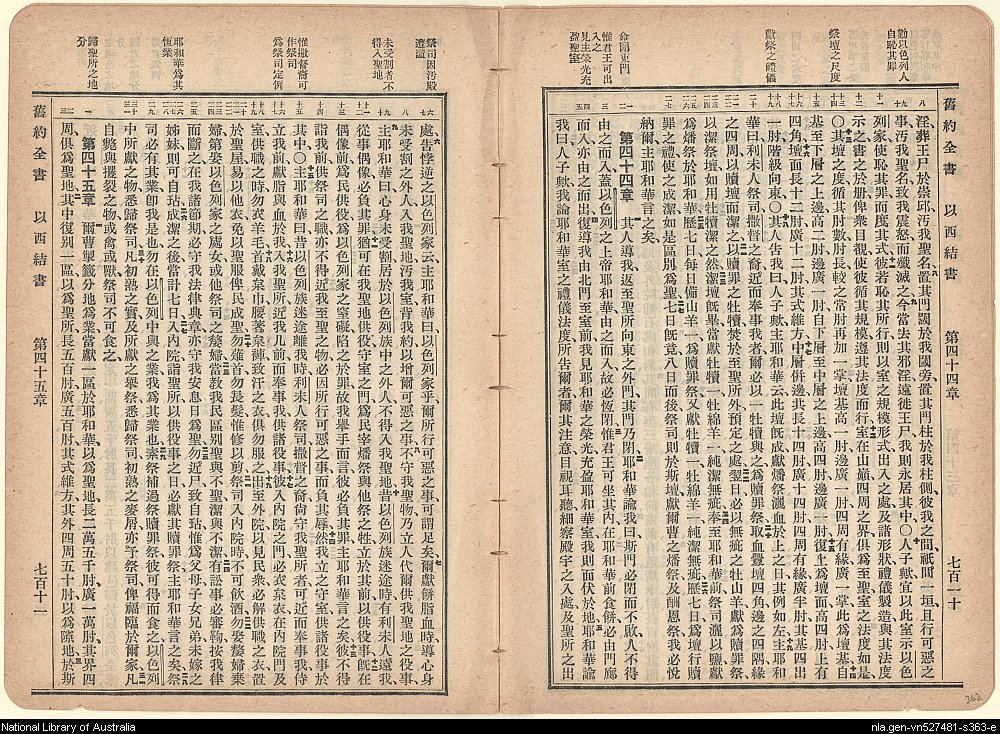 勸以色列人
自恥其罪
祭壇之尺度
獻祭之禮儀
命閉東門
惟君王可出
入之
見主榮光充
盈聖室
舊約全書 以西結書 第四十四章 七百一十
淫葬王尸於崇邱汚我聖名置其門閾於我閾旁置其門柱於我柱側彼我之間祇間一垣且行可惡之
事汚我聖名致我震怒而殲滅之今當去其邪淫遠徙王尸我則永居其中〇人子歟宜以此室示以色
列家使恥其罪而度其式彼若恥其所行則以室之規模形式出入之處及諸形狀禮儀製造與其法度
示之書之於冊俾衆目覩使彼循其規模遵其法度而行室在山巔四周之界俱爲至聖室之法度如是
〇其壇之度循其肘數肘長較之常肘再加一掌壇基高一肘邊廣一肘四周有緣廣一掌此爲壇基自
基至下層之上邊高二肘邊廣一肘自下層至中層之上邊高四肘邊廣一肘復上爲壇面高四肘上有
四角壇面長十二肘廣十二肘其式維方中層併邊共長十四肘廣十四肘四周有緣廣半肘其基四出
一肘階級向東〇其人告我曰人子歟主耶和華云此壇旣成獻燔祭灑血於上之日其例如左主耶和
華曰利未人祭司撒督之裔近而奉事我者爾必以一牡犢與之爲贖罪祭取血釁壇四角邊之四隅緣
之四周以贖壇而潔之以贖罪之牡犢焚於至聖所外預定之處翌日必以無疵之牡山羊獻爲贖罪祭
以潔祭壇如用牡犢潔之然潔壇旣畢當獻牡犢一牡綿羊一純潔無疵奉至耶和華前祭司灑以鹽獻
爲燔祭於耶和華歷七日每日備山羊一爲贖罪祭又獻牡犢一牡綿羊一純潔無疵歷七日爲壇行贖
罪之禮使之成潔如是區別爲聖七日旣竟八日而後祭司則於斯壇獻爾曹之燔祭及酬恩祭我必悅
納爾主耶和華言之矣
第四十四章 其人導我返至聖所向東之外門其門乃閉耶和華諭我曰斯門必閉而不啟人不得
由之而入蓋以色列之上帝耶和華由之而入故必恆閉惟君王可坐其內在耶和華前食餅必由門廊
而入亦由之而出復導我由北門至室前我見耶和華之榮光充盈耶和華室我則面伏於地耶和華諭
我曰人子歟我諭耶和華室之禮儀法度所吿爾者爾其注意目視耳聽細察殿宇之入處及聖所之出
祭司因汚殿
遭譴
未受割者不
得入聖地
惟撒督裔可
作祭司
爲祭司定例
耶和華爲其
恆業
歸聖所之地
分
處告悖逆之以色列家云主耶和華曰以色列家乎爾所行可惡之事可謂足矣爾獻餅脂血時導心身
未受割之外人入我聖地汚我室背我約以增爾可惡之事不守我聖物乃立人代爾供我聖地之役事
主耶和華曰心身未受割居於以色列族中之外人不得入我聖地昔以色列族迷途時有利未人遠我
從事偶像必負其罪猶可在我聖地供役守室之門爲民宰燔祭與他祭之牲立於其前以供役事旣在
偶像前爲民供役爲以色列家之窒礙陷之於罪故我舉手而言彼必負其罪主耶和華言之矣彼不得
詣我前供祭司之職亦不得近我至聖之物必因所行可惡之事而負其辱然我立之守室供諸役事於
其中〇主耶和華曰昔以色列族迷途離我時利未人祭司撒督之裔尚守我聖所者可近而奉事我侍
立我前獻脂與血於我入我聖所近我几前而奉事我供諸役事彼入內院之門必衣枲衣在內院門及
室供職之時勿衣羊毛首戴枲巾腰著枲褲致汗之衣俱勿服之出至外院以見民衆必解供職之衣置
於聖屋易以他衣免以聖服俾民成聖勿薙首勿長髮惟修以剪祭司入內院時不可飮酒勿娶嫠婦棄
婦第娶以色列家之處女或他祭司之嫠婦當教我民區别聖與不聖潔與不潔有訟事必審鞫按我律
而斷之在我諸節期必守我法律典章亦守我安息日爲聖勿近尸致自玷惟爲父母子女兄弟未嫁之
姊妹則可自玷成潔之後當計七日入內院詣聖所以供役事之日必獻其贖罪祭主耶和華言之矣祭
司必有其業卽我是也勿在以色列中與之業我爲其業也素祭補過祭贖罪祭彼可得而食之以色列
中所獻之物悉歸祭司凡初熟之實及所獻之舉祭悉歸祭司初熟之麥屑亦予祭司俾福臨於爾家凡
自斃與攫裂之物或禽或獸祭司不可食之
第四十五章 爾曹掣籤分地爲業當獻一區於耶和華以爲聖地長二萬五千肘廣一萬肘其界四
周俱爲聖地其中復别一區以爲聖所長五百肘廣五百肘其式維方其外四周五十肘以爲隙地於斯
舊約全書 以西結書 第四十五章 七百十一
362
National Library of Australia
nla.gen-vn527481-s363-e